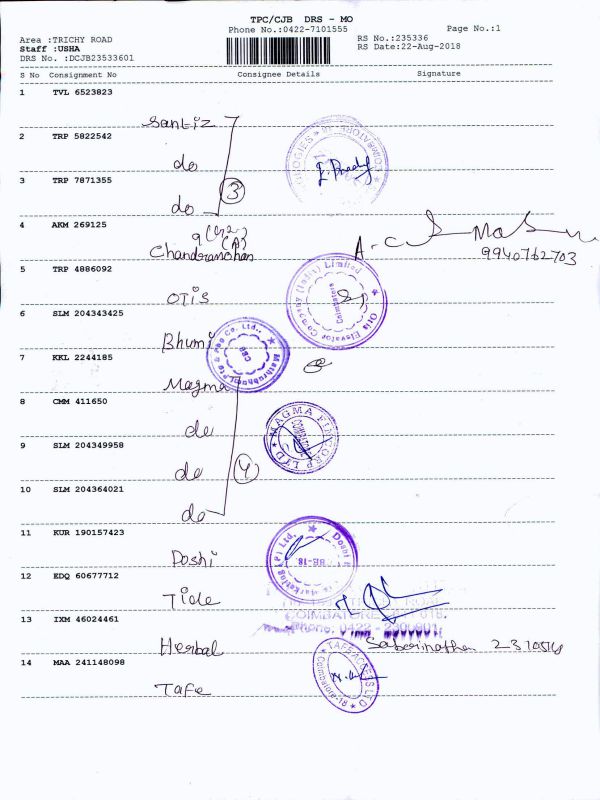 TPC/CJB DRS - MO
Phone No.:0422-7101555
Page No.:1
Area :TRICHY ROAD
RS No.:235336
Staff :USHA
RS Date:22-Aug-2018
DRS No. :DCJB23533601
S No Consignment No Consignee Details Signature
1 TVL 6523823
Santiz
2 TRP 5822542
do
3 TRP 7871355
do 3
4 AKM 269125
Chandramohan A.C
9940762703
5 TRP 4886092
OTIS
Otis Elevator Company (India) Limited
Coimbatore
6 SLM 204343425
Bhumi
7 KKL 2244185
Magma
8 CMM 411650
do
MAGMA FINCORP LTD
9 SLM 204349958
do 4
10 SLM 204364021
do
11 KUR 190157423
Doshi
12 EDQ 60677712
Tide
COIMBATORE
13 IXM 46024461
Herbal Sabarinathan
14 MAA 241148098
Tafe
Coimbatore-18